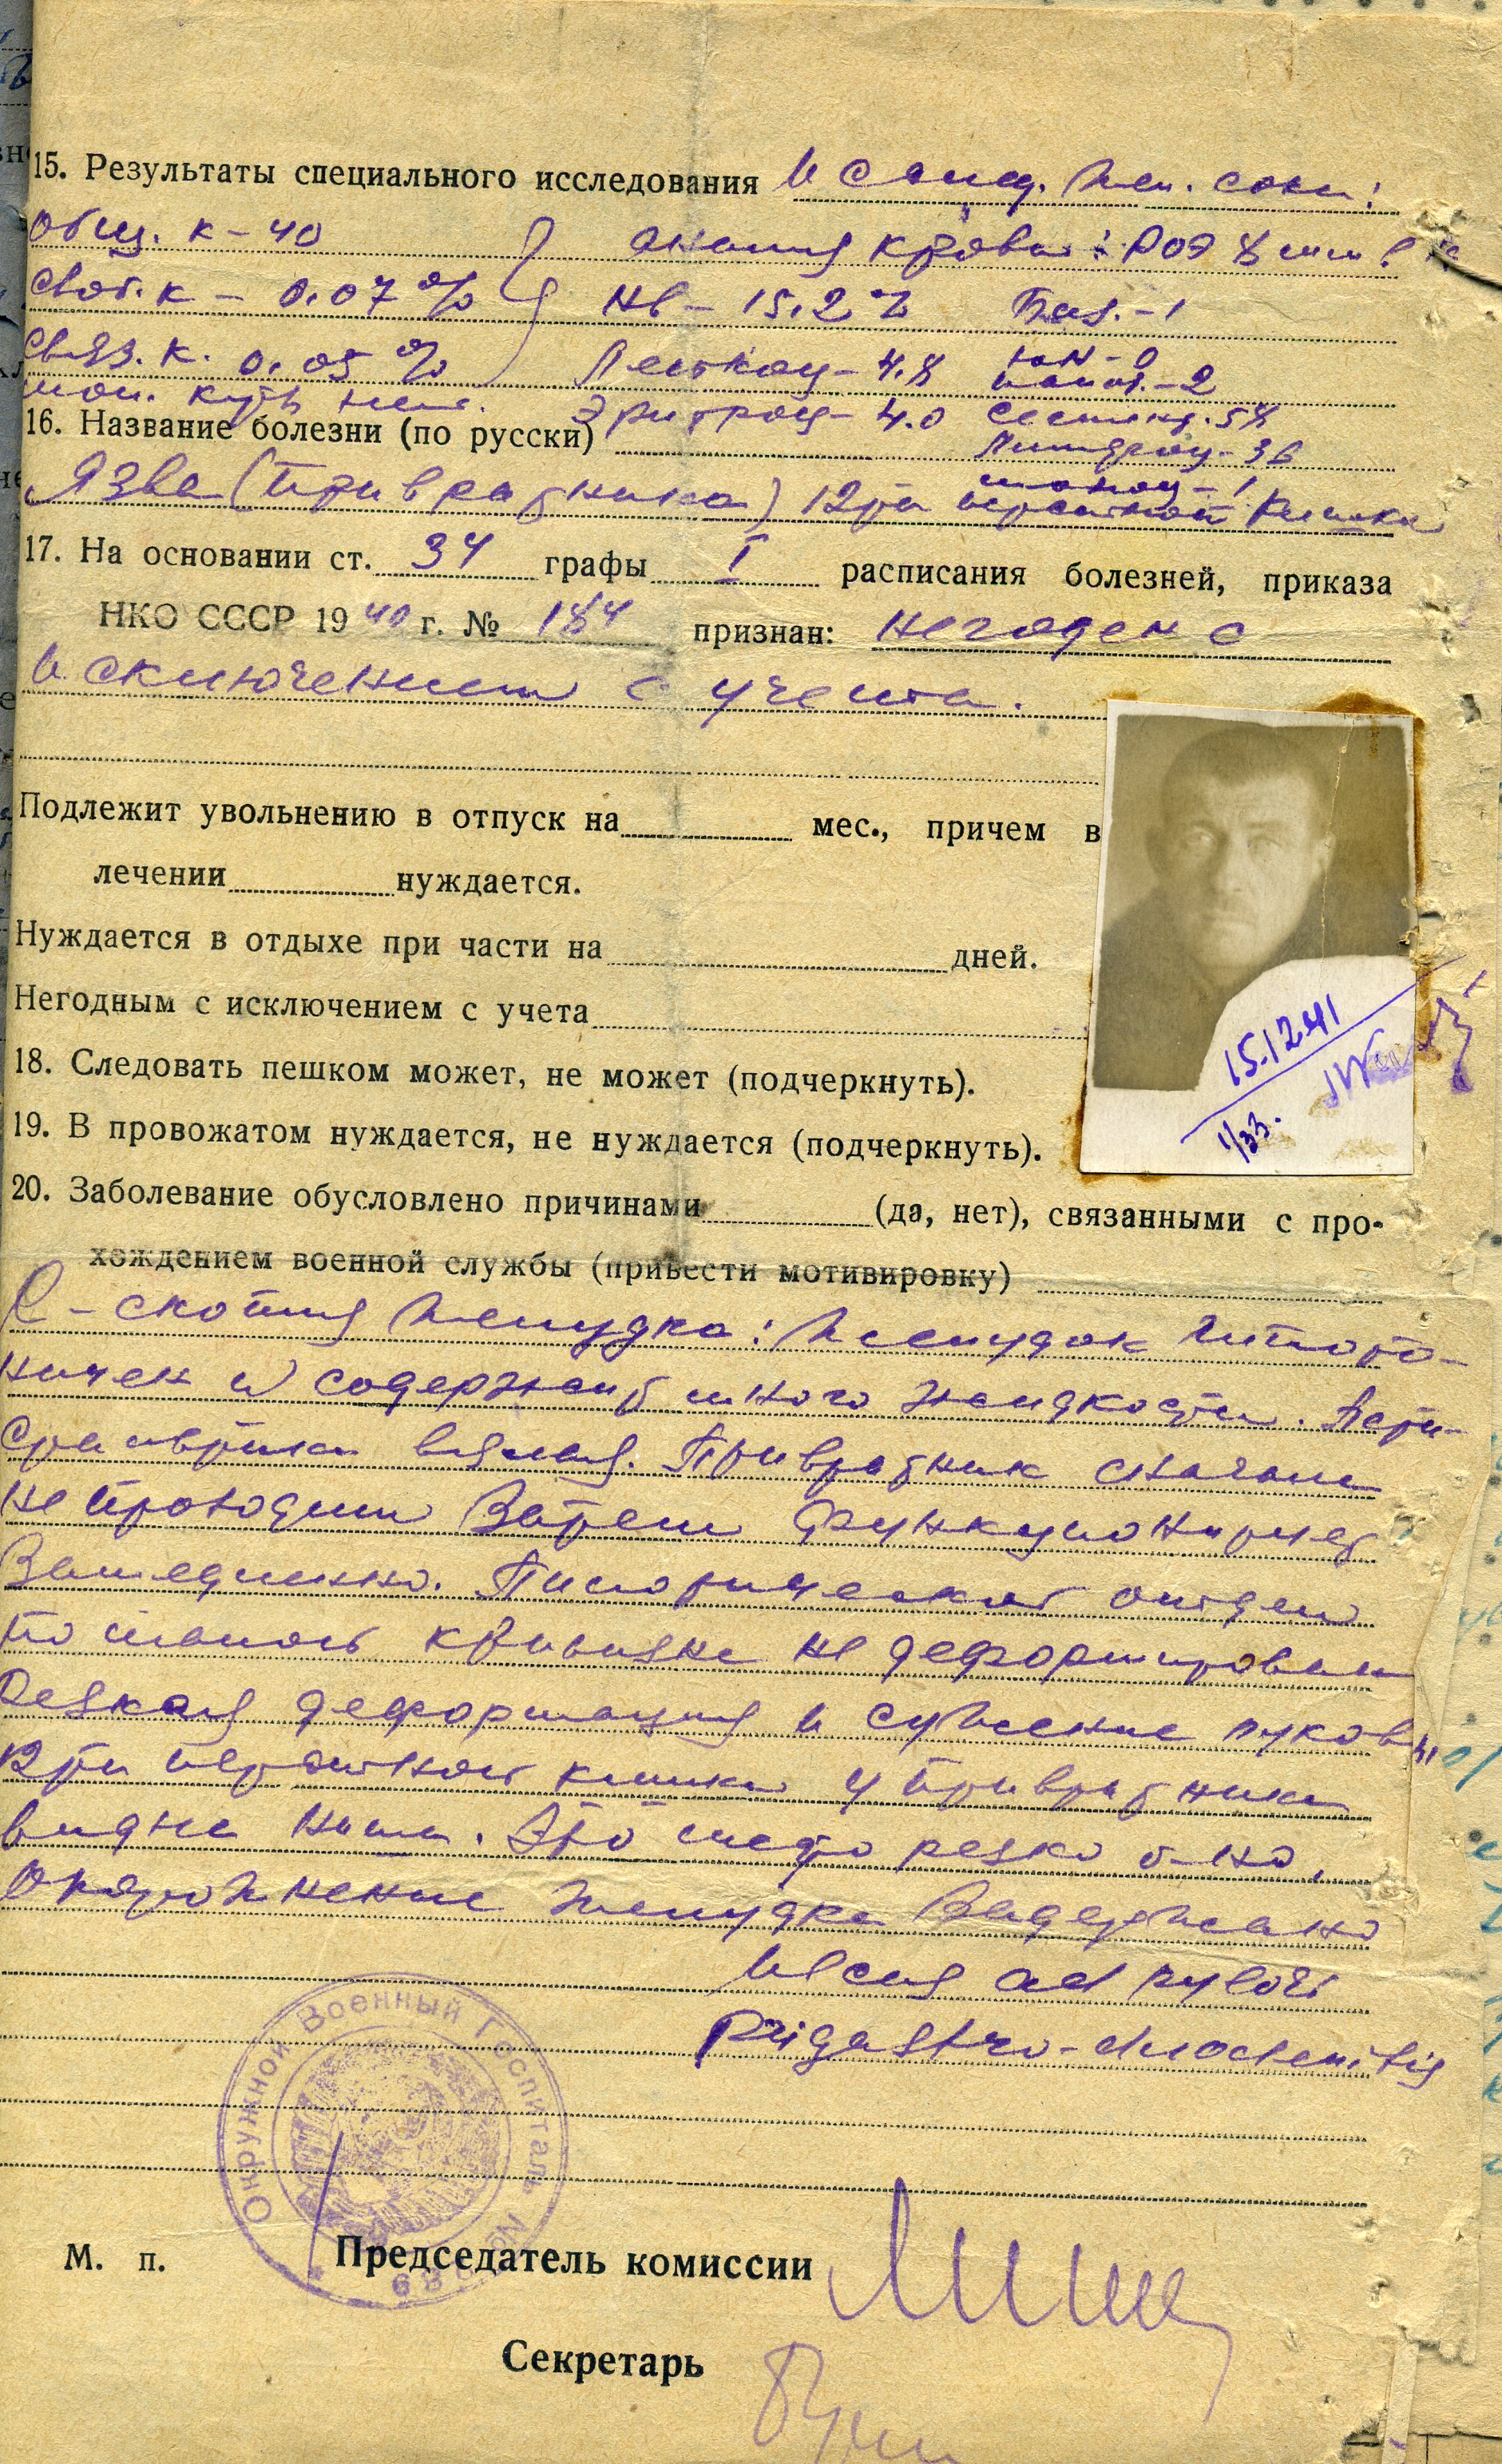 15. Результаты специального исследования Исслед. жел. сока:
Общ. к – 40 анализ крови: РОЭ 8 мм в
Своб. к – 0.07 % Нв – 15.2 % Баз. – 1
Связ. к. 0.05 % Лейкоц – 4.8 Юн – 0
палоч. – 2
мол. к-ты нет. Эритроц – 4.0 Сегмент. 58
16. Название болезни (по русски)
Лимфоц – 36
моноц – 1
Язва (привратника) 12ти перстной кишки
17. На основании ст. 34 графы I расписания болезней, приказа
НКО СССР 1940 г. № 184 признан: негоден с
исключением с учета.
Подлежит увольнению в отпуск на мес., причем в
лечении нуждается.
Нуждается в отдыхе при части на дней.
Негодным с исключением с учета
15.12.41
1/33.
18. Следовать пешком может, не может (подчеркнуть).
19. В провожатом нуждается, не нуждается (подчеркнуть).
20. Заболевание обусловлено причинами (да, нет), связанными с про-
хождением военной службы (привести мотивировку)
R – скопия желудка: желудок гипото-
ничен и содержит много жидкости. Пери-
стальтика вялая. Привратник сначала
не проходим затем функционирует
замедленно. Пилорический отдел
по малой кривизне не деформирован
Резкая деформация и сужение луковицы
12ти перстной кишки у привратника
видна ниша. Это место резко б-но,
опорожнение желудка задержано
Ulcus ad pylori
Perigastro-duodenitis
Окружной Военный Госпиталь №
М. п. Председатель комиссии
Секретарь